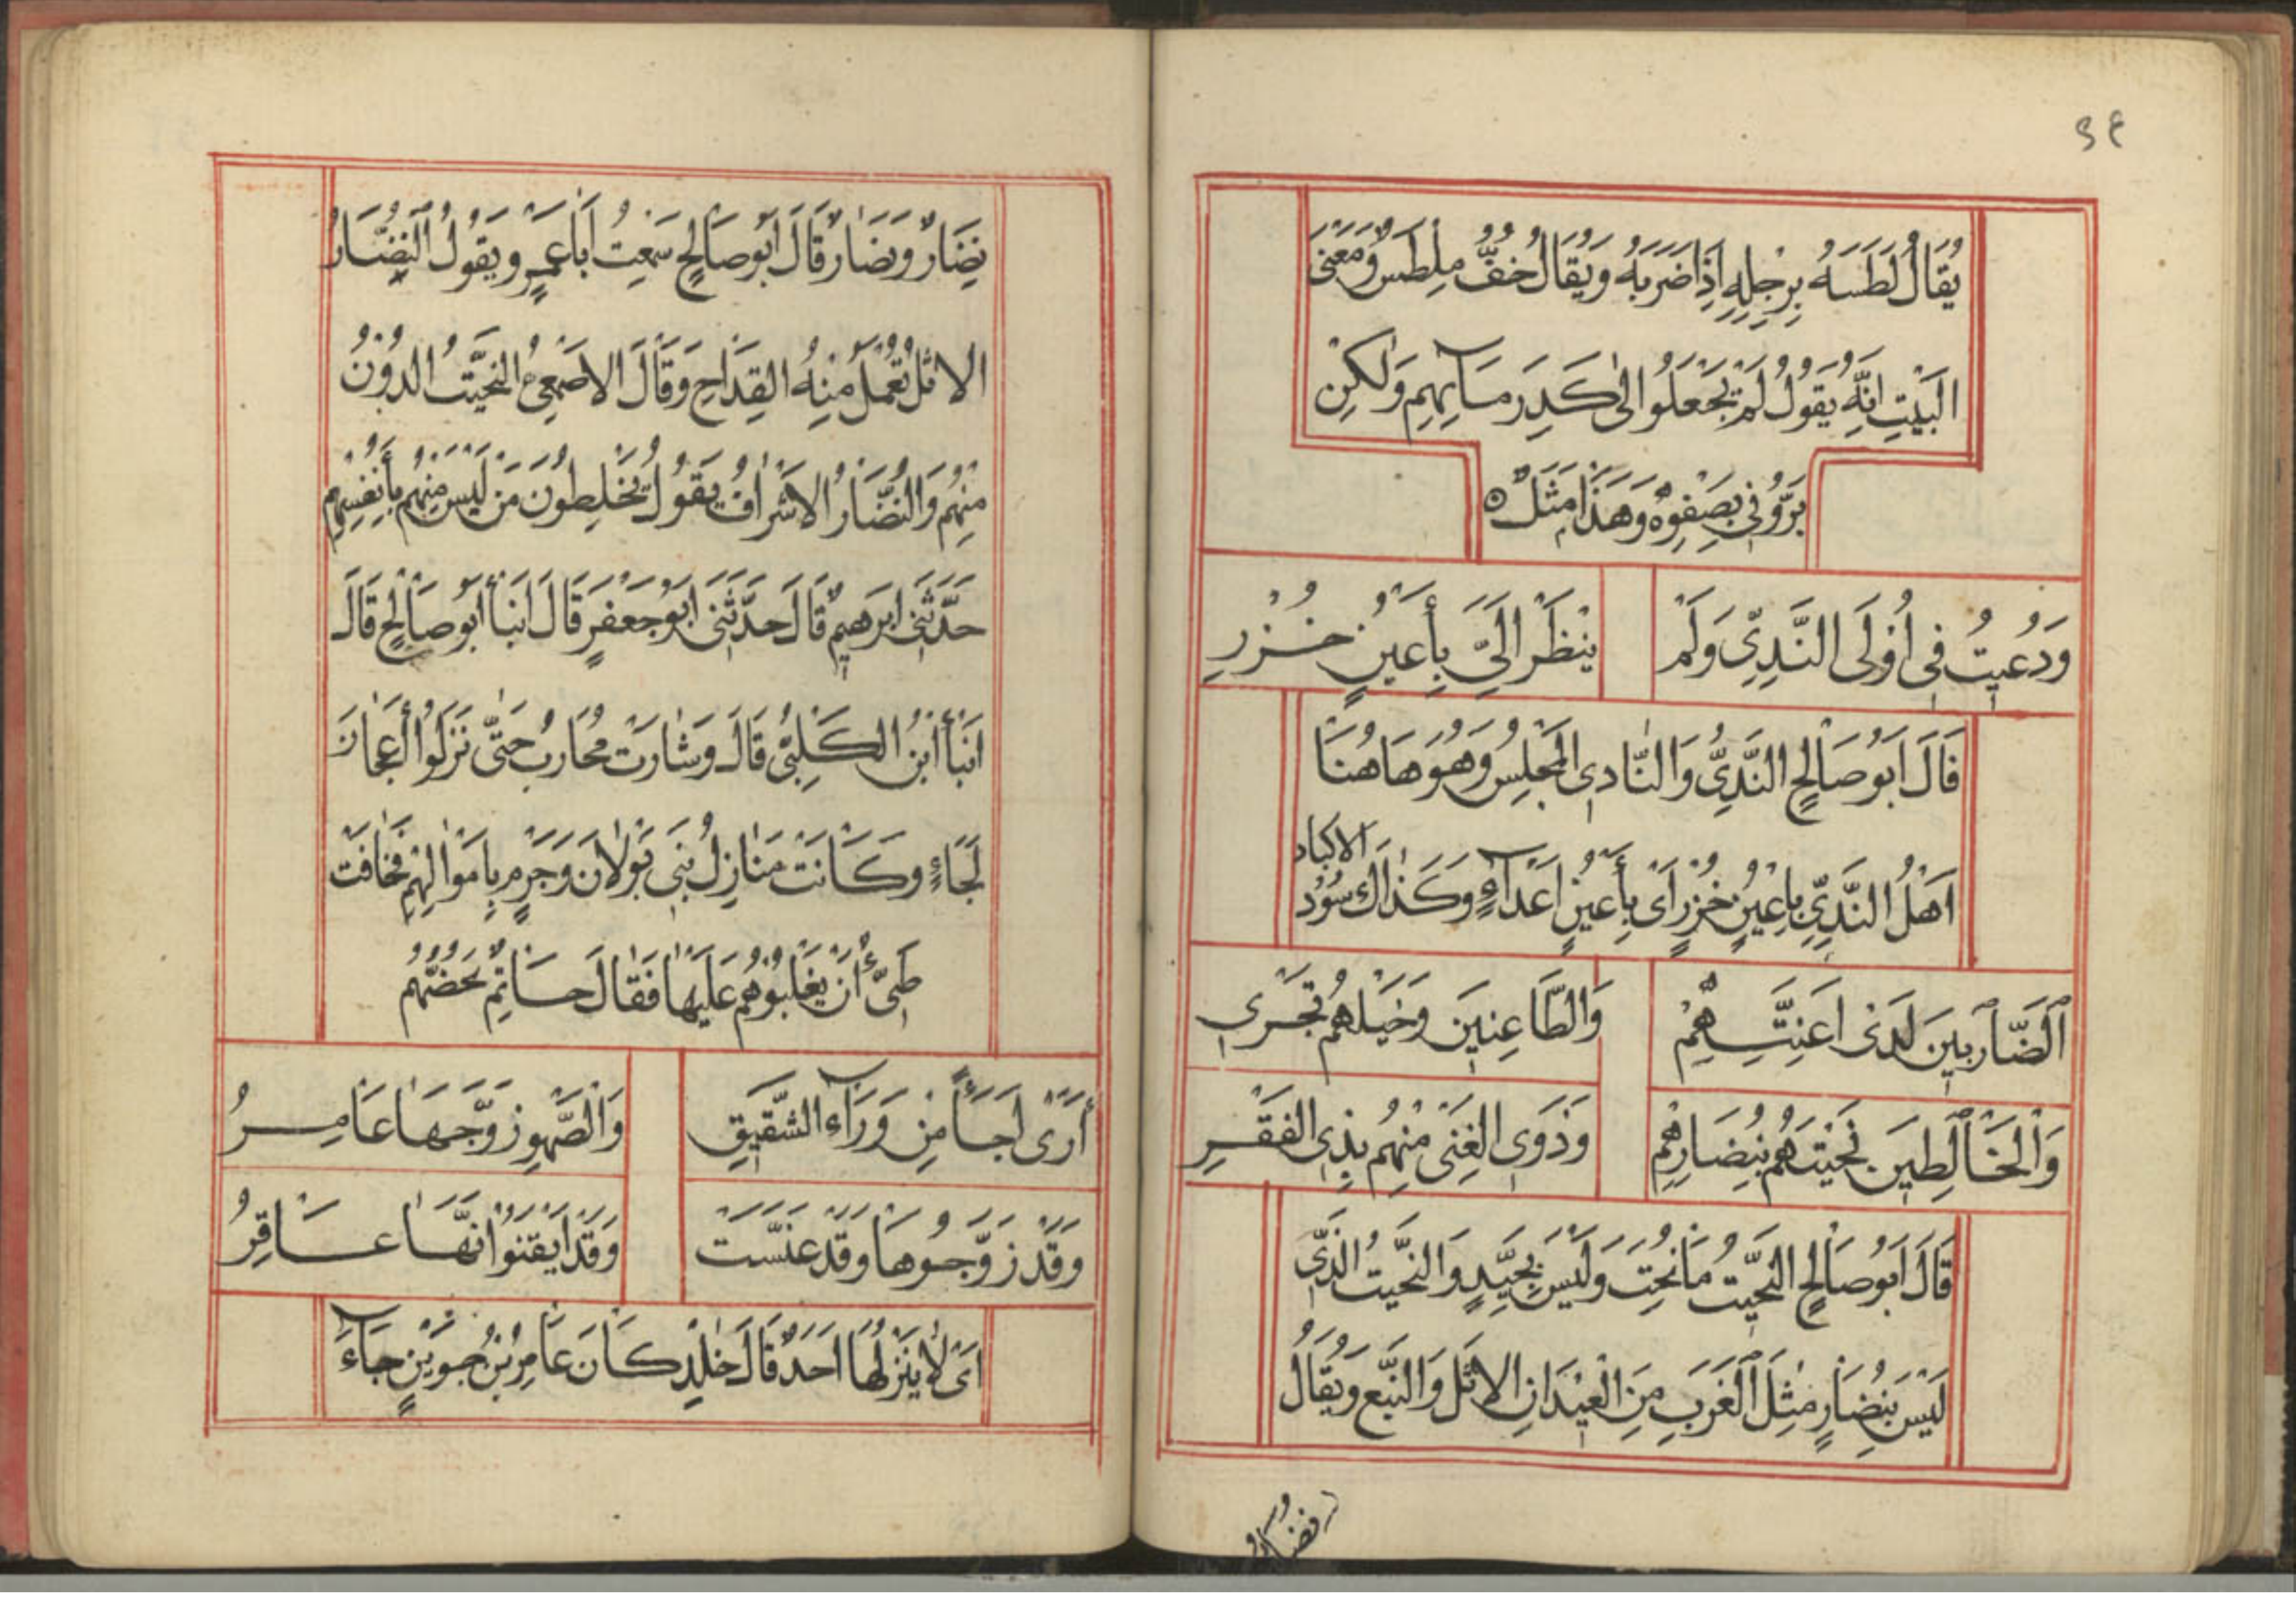 ٣٤
يُقَالُ لَطَسَهُ بِرِجْلِهِ اِذَا ضَرَبَهُ وَيُقَالُ خُفٌّ مِلْطَسٌ وَمَعْنَى
الْبَيْتِ اِنَّهُ يَقُولُ لَمْ يَجْعَلُوا اِلَى كَدَرٍ مسَآئِهِم وَلٰكِنْ
بَرَّزُوْنِى بِصَفْوِهِ وَهَذَا مَثَلٌ ه
وَدُعِيتُ فِى اُوْلَى النَّدِيِّ وَلَمْ يُنْظَرْ اِلَيَّ بِأَعْيُنٍ خُزْرِ
قَالَ اَبُوصَالِحٍ النَّدِيُّ وَالنَّادِى الْمَجْلِسُ وَهُوَ هَاهُنَا
اَهْلُ النَّدِيِّ بِاعْيُنٍ خُزْرٍ اَىْ بِأَعْيُنِ اَعْدَآءٍ وَكَذَاكَ سُوْدُ الاكباد
اَلضَّارِبِيْنَ لَدَى اَعِنَّتِهِمْ وَالطَّاعِنِينَ وَخَيْلُهُمْ تَجْرِي
وَالْخَالِطِيْنَ نَحِيْتَهُمْ بِنُضَارِهِمْ وَذَوِى الْغِنَى مِنْهُمْ بِذِى الفَقْرِ
قَالَ اَبُوصَالِحٍ النَّحِيْتُ مَا نُحِتَ وَلَيْسَ بِجَيِّدٍ وَالنَّحِيْتُ الَّذِى
لَيْسَ بِنُضَارٍ مِثْلَ الْغَرَبِ مِنَ الْعِيْدَانِ الاَثْلِ وَالنَّبْعِ وَيُقَالُ
نِضَارٌ وَنُضَارٌ قَالَ اَبُوصَالِحٍ سَمِعْتُ اَبَا عَمْرٍو يَقُولُ النُّضَارُ
الاَثْلُ تُعْمَلُ مِنْهُ القِدَاحُ وَقَالَ الاَصْمَعِىُّ النَّحِيْتُ الدُّوْنُ
مِنْهُمْ وَالنُّضَارُ الاَشْرَافُ يَقُولُ يَخْلِطُونَ مَنْ لَيْسَ مِنْهُمْ بِأَنْفُسِهِمْ
حَدَّثَنِى اِبْرَهِيمُ قَالَ حَدَّثَنِى اَبُوْ جَعْفَرٍ قَالَ اَنْبَأَ اَبُو صَالِحٍ قَالَ
اَنْبَأَ ابْنُ الكَلْبِيِّ قَالَ وَسَارَتْ مُحَارِبُ حَتَّى نَزَلُوا أَعْجَازَ
لَجَاءٍ وَكَانَتْ مَنَازِلُ بَنِى بَوْلَانَ وَجَرْمٍ بِاَمْوَالِهِمْ فَخَافَتْ
طَىِّءٌ أَنْ يَغْلِبُوْهُمْ عَلَيْهَا فَقَالَ حَاتِمٌ يَحُضُّهُمْ
أَرَى اَجَأً مِنْ وَرَآءِ الشَّقِيقِ وَالْصَّهْوِ زَوَّجَهَا عَامِرُ
وَقَدْ زَوَّجُوهَا وَقَدْ عَنَّسَتْ وَقَدْ اَيْقَنُوْا اَنَّهَا عَاقِرُ
اَىْ لَا يَنْزِلُهَا اَحَدٌ قَالَ خَالِدٌ كَانَ عَامِرُ بْنُ جُوَيْنٍ جَآءَ